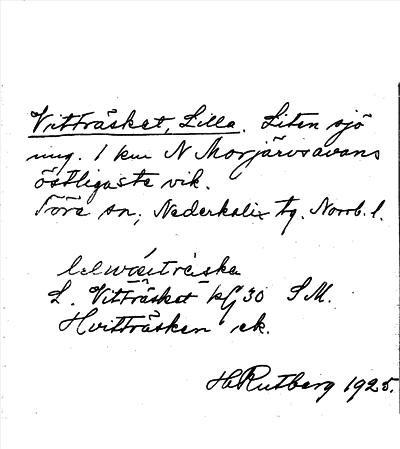 Vitträsket, Lilla. Liten sjö
ung. 1 km N Morjärvsavans
östligaste vik.
Töre sn, Nederkalix tg. Norrb. l.
L. Vitträsket kG 30 SM.
Hvitträsken ek.
H Rutberg 1925.